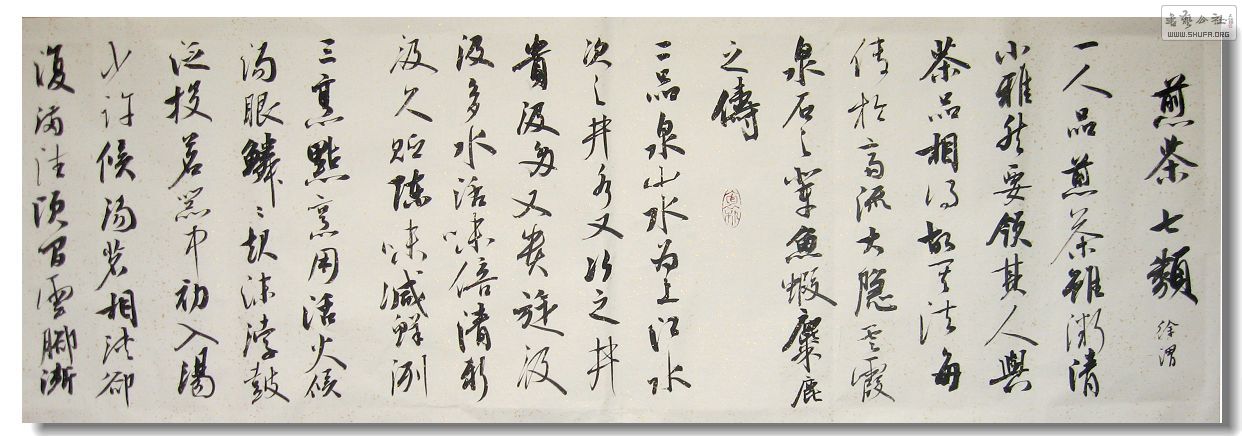 煎茶七類 徐渭
一人品煎茶雖微清
小雅然要領其人與
茶品相得故其法每
傳於高流大隱雲霞
泉石之輩魚蝦麋鹿
之儔
二品泉山水為上江水
次之井水又次之井
貴汲多又貴旋汲
汲多水活味倍清新
汲久貯陳味減鮮洌
三烹點烹用活火候
湯眼鱗〻起沫浡鼓
泛投茗器中初入湯
少許候湯茗相浹卻
復滿注頃間雲腳漸
書藝公社
WWW.SHUFA.ORG